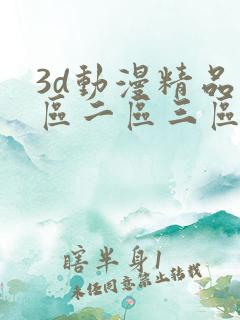 3d動漫精品
區二區三區
瞎半身1
未经同意禁止转载